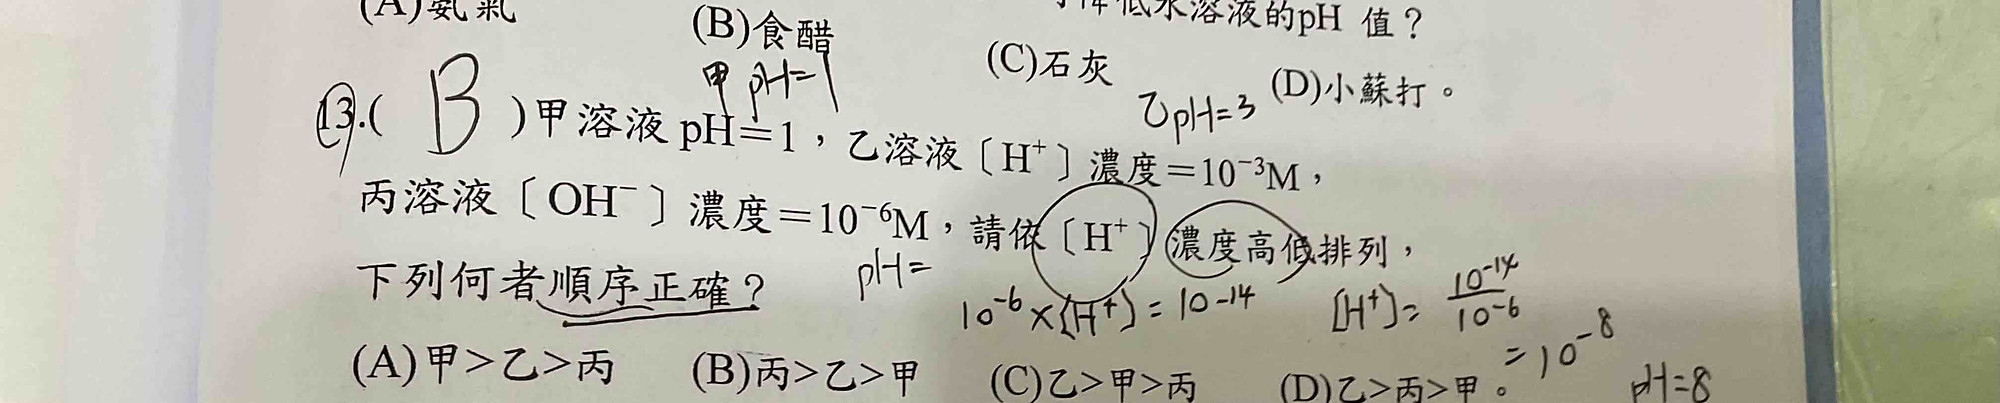 降低水溶液的pH 值？
(A)氨氣 (B)食醋 (C)石灰 (D)小蘇打。
甲 pH=1 乙pH=3
13.( B )甲溶液 pH=1，乙溶液〔H⁺〕濃度=10⁻³M，
丙溶液〔OH⁻〕濃度=10⁻⁶M，請依〔H⁺〕濃度高低排列，
下列何者順序正確？ pH=
10⁻⁶×[H⁺]=10⁻¹⁴ [H⁺]= 10⁻¹⁴/10⁻⁶
=10⁻⁸
pH=8
(A)甲>乙>丙 (B)丙>乙>甲 (C)乙>甲>丙 (D)乙>丙>甲。